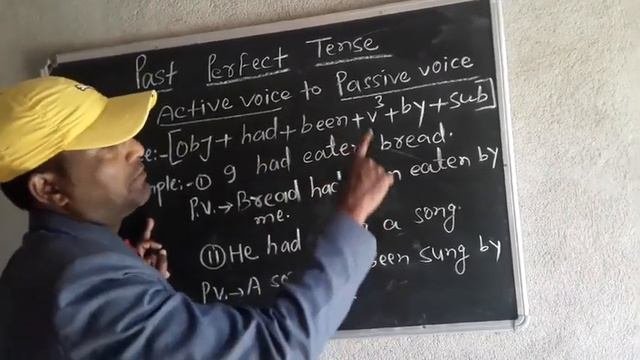 Past Perfect Tense
Active voice to Passive voice
:-[Obj + had + been + v³ + by + sub]
:- (i) I had eaten bread.
P.V. → Bread had eaten by
me.
(ii) He had a song.
P.V. → A been sung by